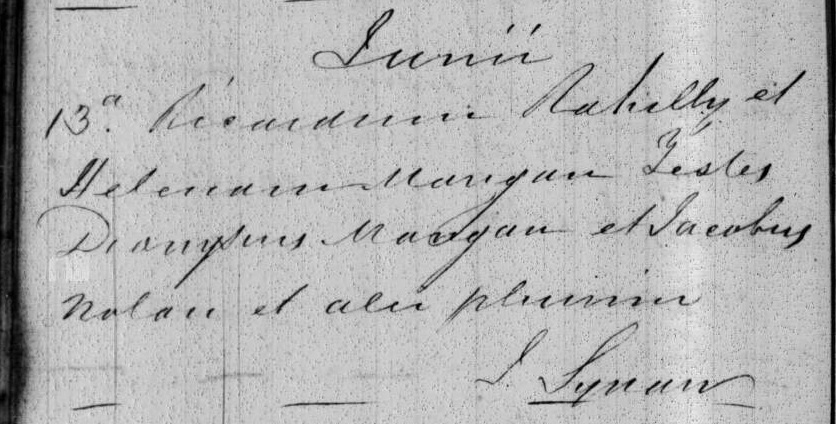 Junii
13ª. Ricardum Rahilly et
Helenam Mangan Testes
Dionysius Mangan et Jacobus
Nolan et alii plurimi
J Synan